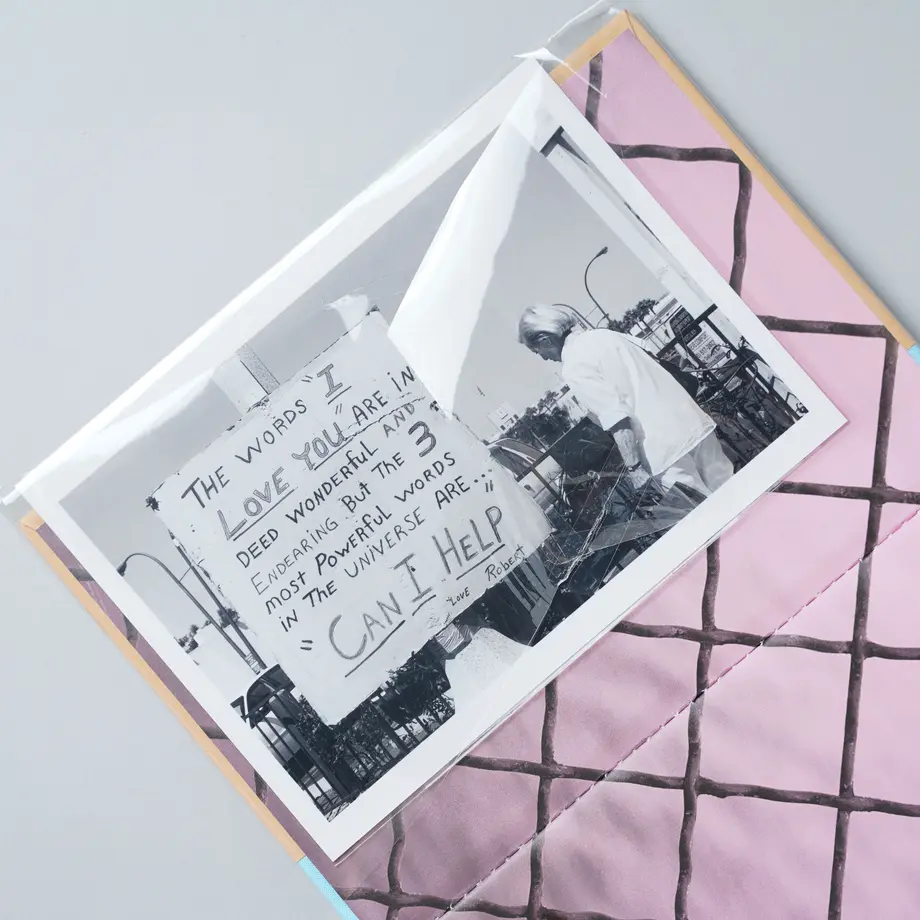 THE WORDS "I
LOVE YOU" ARE IN
DEED WONDERFUL AND
ENDEARING BUT THE 3
MOST POWERFUL WORDS
IN THE UNIVERSE ARE..
"CAN I HELP"
LOVE Robert